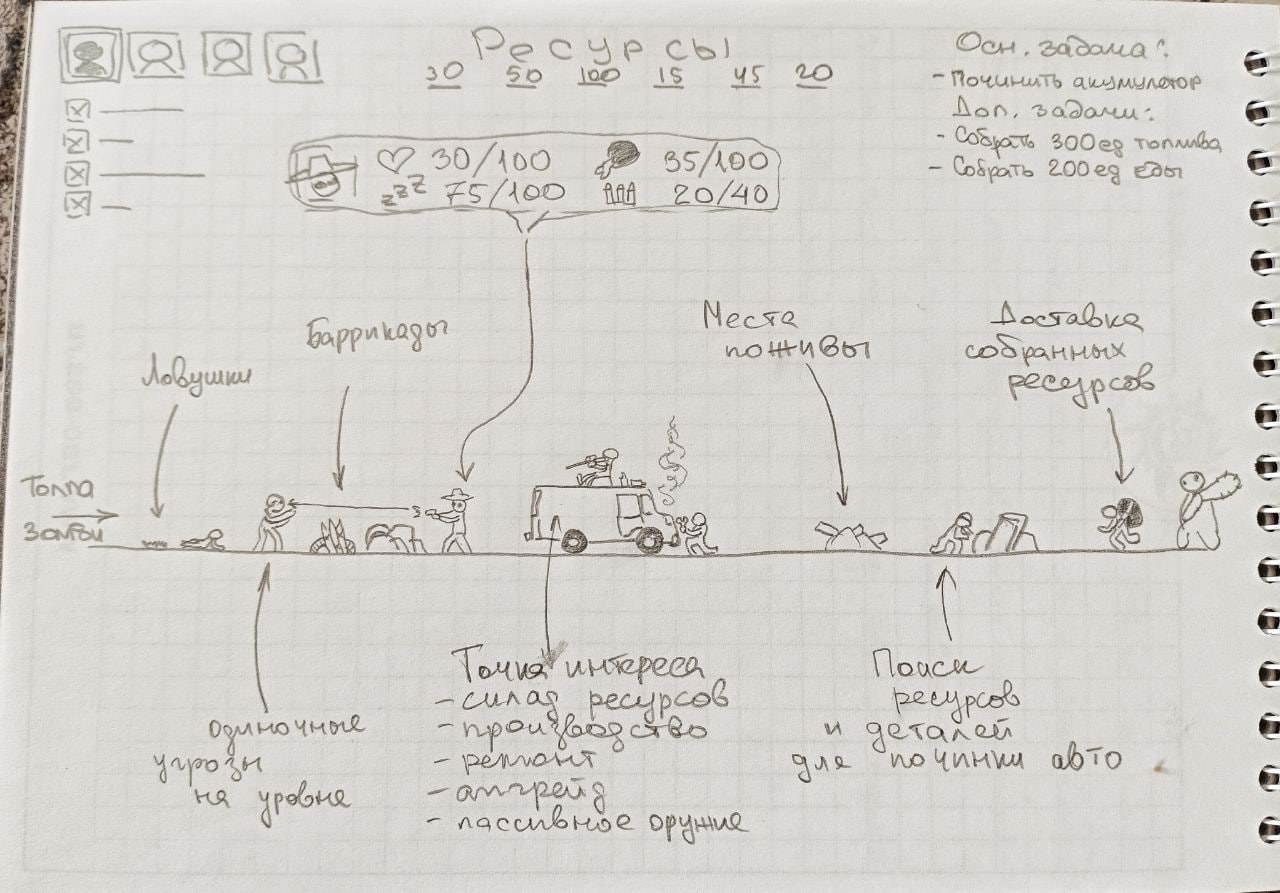 Ресурсы
30 50 100 15 45 20
Осн. задача:
- Починить акумулятор
Доп. задачи:
- Собрать 300 ед топлива
- Собрать 200 ед еды
30/100 35/100
zzz 75/100 20/40
Ловушки
Баррикады
Места
поживы
Доставка
собранных
ресурсов
Толпа
Зомби
одиночные
угрозы
на уровне
Точка интереса
- склад ресурсов
- производство
- ремонт
- апгрейд
- пассивное оружие
Поиск
ресурсов
и деталей
для починки авто